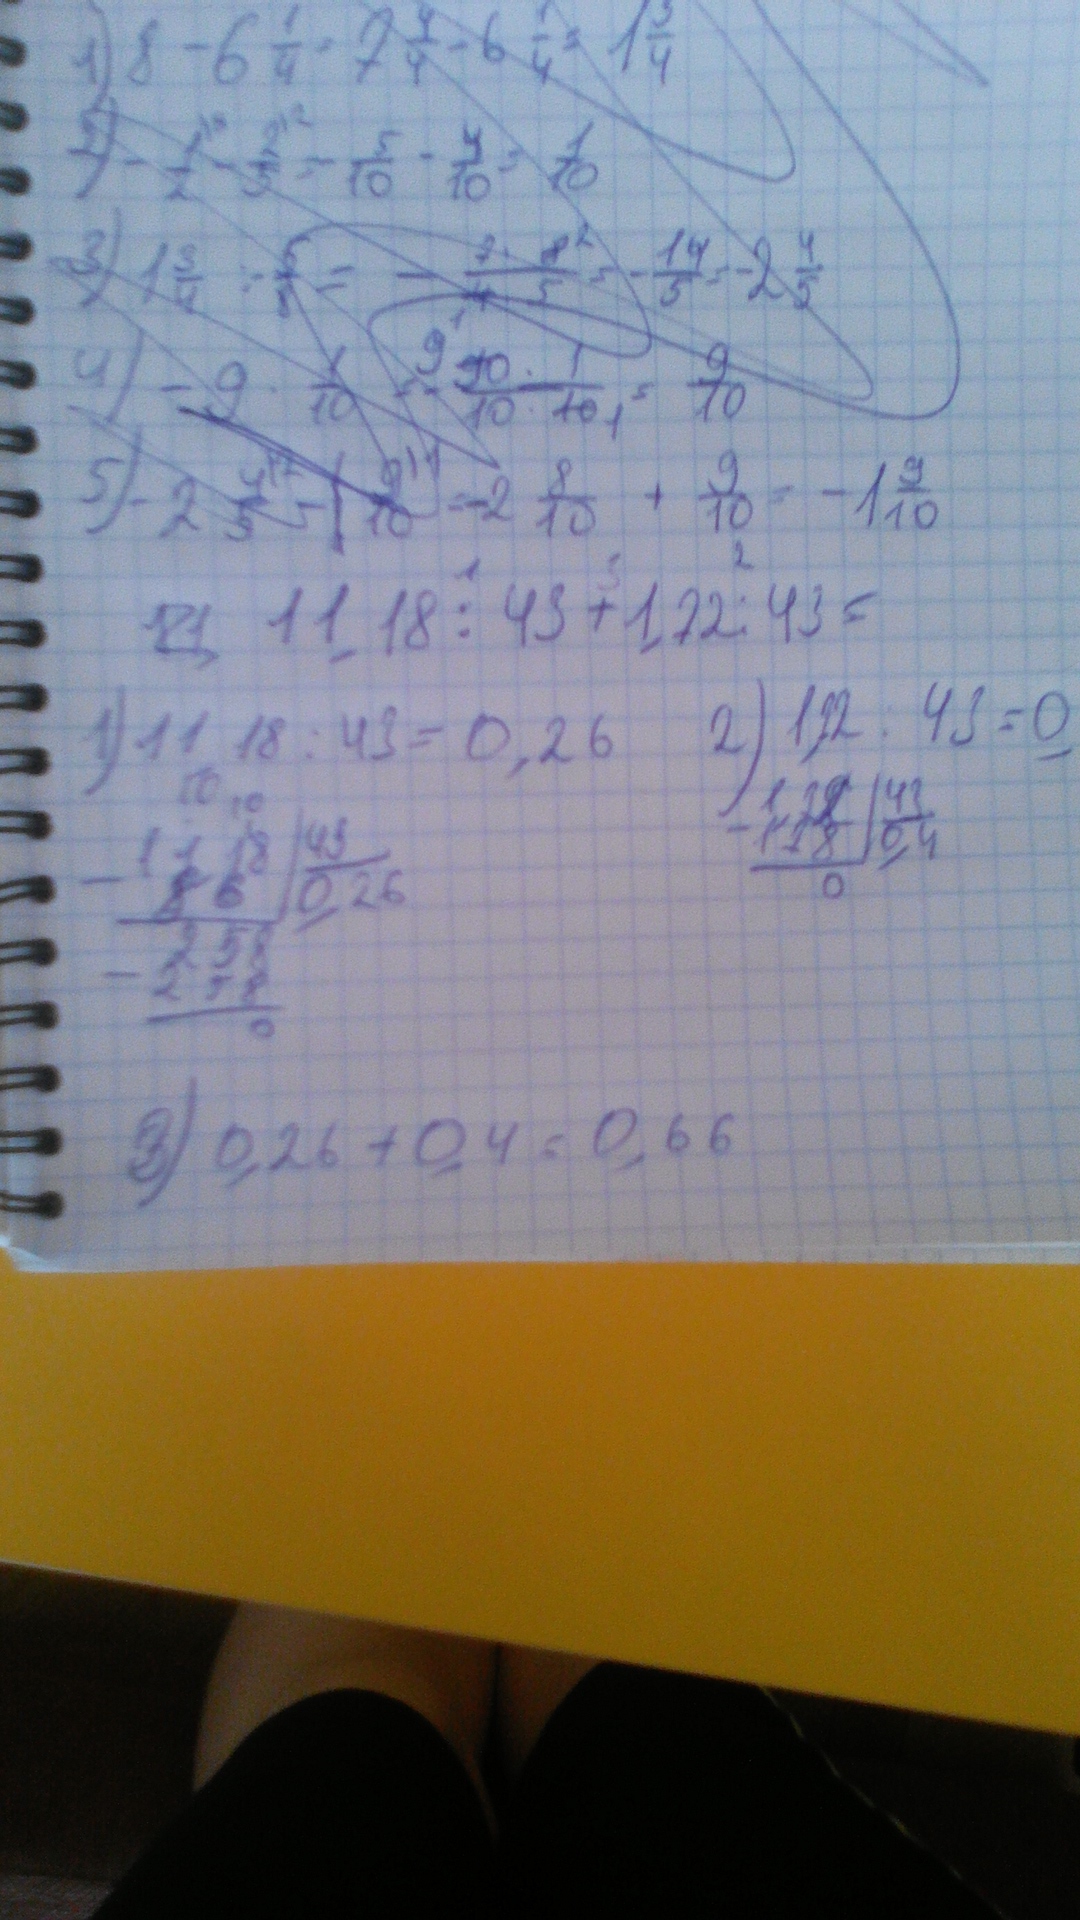 1) 8 - 6 1/4 = 7 4/4 - 6 1/4 = 1 3/4
2) - 1/2 - 2/5 = 5/10 - 4/10 = 1/10
3) 1 3/4 : 5/8 = - 7 · 8 2 / 4 · 5 = - 14/5 = - 2 4/5
4) - 9 · 1/10 = - 90 · 1 / 10 · 10 = 9/10
5) - 2 4/5 - 9/10 = - 2 8/10 + 9/10 = - 1 9/10
11,18 : 43 + 1,72 : 43 =
1) 11,18 : 43 = 0,26 2) 1,72 : 43 = 0,
11 18 | 43
- 8 6 | 0,26
258
- 258
0
172 | 43
- 0,4
0
3) 0,26 + 0,4 = 0,66